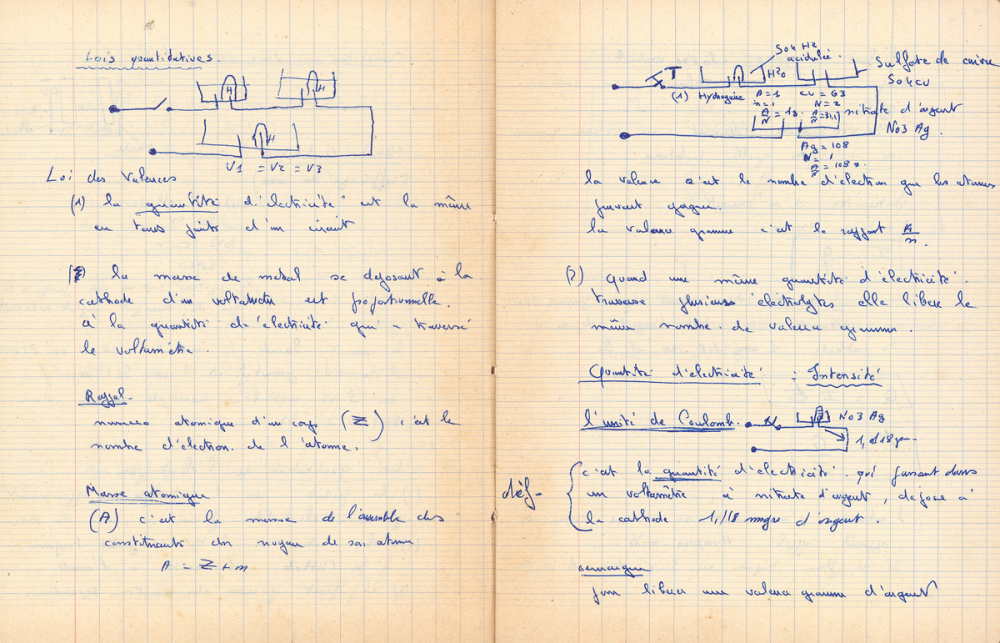 Lois quantitatives.
H
H
H
V1 = V2 = V3
Loi des Valences
(1) la quantité d'électricité est la même
en tous points d'un circuit
(2) la masse de métal se déposant à la
cathode d'un voltamètre est proportionnelle.
à la quantité d'électricité qui a traversé
le voltamètre.
Rappel.
numéro atomique d'un corps (Z) c'est le
nombre d'électron de l'atome.
Masse atomique
(A) c'est la masse de l'ensemble des
constituants du noyau de son atome
A = Z + n
So4 H2
acidulée.
T
H
H2O
Sulfate de cuivre
So4 cu
(1) Hydrogène
A = 1
n = 1
A/N = 1g.
cu = 63
N = 2
A/N = 31,5
nitrate d'argent
No3 Ag.
Ag = 108
N = 1
A/N = 108
la valence c'est le nombre d'électron que les atomes
peuvent gagner.
la valence gramme c'est le rapport A/n.
(3) quand une même quantité d'électricité.
traverse plusieurs électrolytes elle libère le
même nombre de valence gramme.
Quantité d'électricité : Intensité
l'unité de Coulomb.
No3 Ag
1,118
déf-
c'est la quantité d'électricité qui passant dans
un voltamètre à nitrate d'argent, dépose à
la cathode 1,118 mmgr d'argent.
remarque
pour libérer une valence gramme d'argent